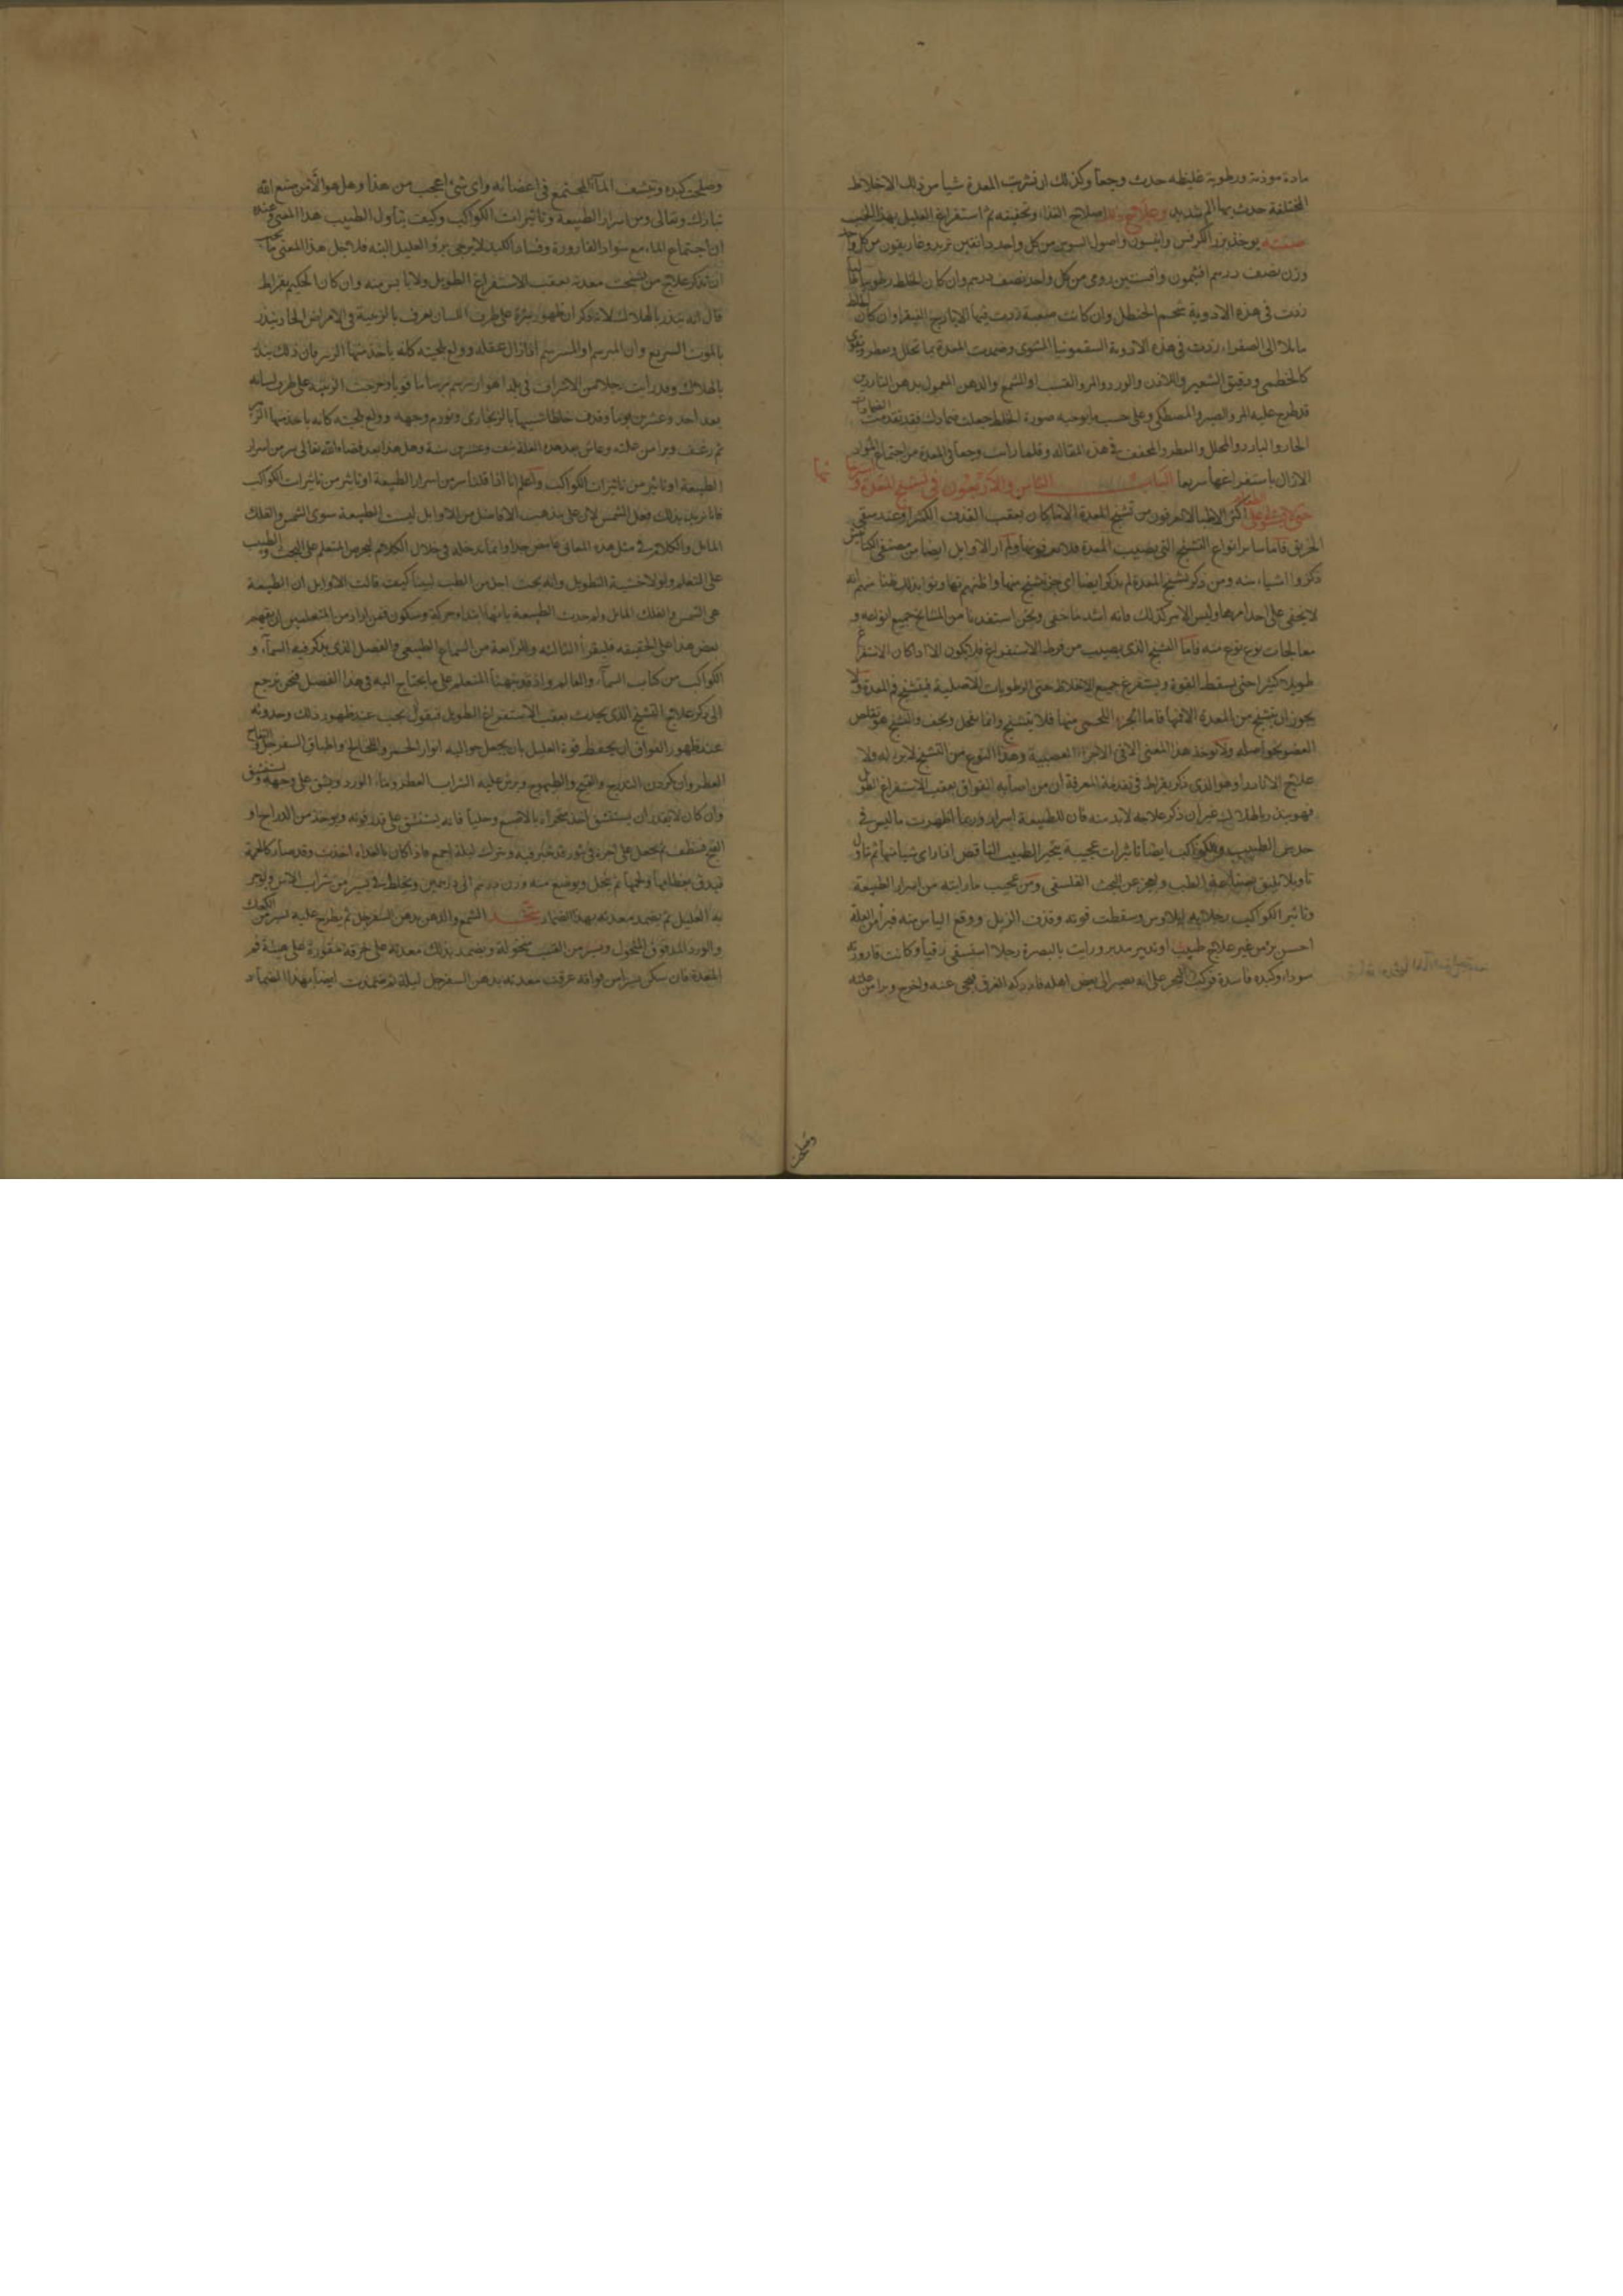 مادة موذية ورطوبة غليظه حدث وجعاً وكذلك ان نشربت المعدة شيا من تلك الاخلاط
المختلفة حدث بها الم شديد وعلاجه اصلاح الغذاء وتخفيفه ثم استفراغ العليل بهذا الحب
صفته يوخذ بزر الكرفس وانيسون واصول السوس من كل واحد دانقين تربد وغاريقون من كل واحد
وزن نصف درهم افتيمون وافسنتين رومى من كل واحد نصف درهم وان كان الخلط رطوبيا
زدت فى هذه الادوية شحم الحنظل وان كانت منصبة زدت فيها الايارج الفيقرا وان كان الخلط
مايلا الى الصفراء زدت فى هذه الادوية السقمونيا المشوى وضمدت المعدة بما تحلل وتعطر وتقوى
كالخطمى ودقيق الشعير واللادن والورد والمر والقسب او الشمع والدهن المعمول بدهن الناردين
قد طرح عليه المر والصبر والمصطكى وعلى حسب ما توجبه صورة الخلط جعلت ضمادك فقد تقدمت الضمادات
الحار والبارد والمحلل والمعطر والمجفف فى هذه المقاله وقلما رايت وجعاً فى المعدة من اجتماع المواد
الا زال باستفراغها سريعا الباب الثامن والاربعون فى تشنج المعدة
اكثر الاطبا لا يعرفون من تشنج المعدة الا ما كان بعقب القذف الكثير او عند سقى
الخربق فاما ساير انواع التشنج التى تصيب المعدة فلا يعرفونها ولم ار الاوايل ايضا من مصنفى
ذكروا اشياء منه ومن ذكر تشنج المعدة لم يذكر ايضا اى جزء يتشنج منها
لا يخفى على احد امرها وليس الامر كذلك فانه اشد ما خفى ونحن استفدنا من المشايخ جميع انواعه و
معالجات نوع نوع منه فاما التشنج الذى يصيب من فرط الاستفراغ فلا يكون الا اذا كان الاستفراغ
طويلا كثيرا حتى يسقط القوة ويستفرغ جميع الاخلاط حتى الرطوبات الاصلية فيتشنج فم المعدة ولا
يجوز ان يتشنج من المعدة الا فمها فاما الجزء اللحمى منها فلا يتشنج وانما ينحل ويجف والتشنج هو تقلص
العضو نحو اصله ولا يوجد هذا المعنى الا فى الاجزاء العصبية وهذا النوع من التشنج لا برء له ولا
علاج الا نادرا وهو الذى ذكر بقراط فى تقدمة المعرفة ان من اصابه الفواق بعقب الاستفراغ الطويل
فهو ينذر بالهلاك غير ان ذكر علاجه لا بد منه فان للطبيعة اسرار وربما اظهرت ما ليس فى
حدس الطبيب وللكواكب ايضا تاثيرات عجيبة يتحير الطبيب الناقص اذا راى شيا منها ثم تاول
تاويلا يليق بصناعة الطب ويعجز عن البحث الفلسفى ومن عجيب ما رايته من اسرار الطبيعة
وتاثير الكواكب رجلا به ايلاوس وسقطت قوته وقذف الزبل ووقع الياس منه فبرأ من العلة
احسن برء من غير علاج طبيب او تدبير مدبر ورايت بالبصرة رجلا استسقى زقياً وكانت قارورته
سوداء وكبده فاسدة فركب البحر على انه يصير الى بعض اهله فادركه الغرق فنجى عنه وخرج وبرا من علته
وصلحت
وصلحت كبده ونشف الماء المجتمع فى اعضائه واى شئ اعجب من هذا وهل هو الا من صنع الله
تبارك وتعالى ومن اسرار الطبيعة وتاثيرات الكواكب وكيف يتاول الطبيب هذا المعنى وعنده
ان اجتماع الماء مع سواد القارورة وفساد الكبد لا يرجى برؤ العليل البته فلاجل هذا المعنى ما يجب
ان نذكر علاج من تشنجت معدته بعقب الاستفراغ الطويل ولا نايس منه وان كان الحكيم بقراط
قال انه ينذر بالهلاك لانا نذكر ان ظهور بثرة على طرف اللسان تعرف بالزجية فى الامراض الحادة ينذر
بالموت السريع وان المبرسم او المسرسم اذا زال عقله وولع بلحيته كانه ياخذ منها الزبير فان ذلك ينذر
بالهلاك وقد رايت رجلا من الاشراف فى بلد اهواز برسم برساما قويا وخرجت البثرة على طرف لسانه
بعد احد وعشرين يوما وقذف خلطا شبيها بالزنجارى وتورم وجهه وولع بلحيته كانه ياخذ منها
ثم رعف وبرا من علته وعاش بعد هذه العلة نيف وعشرين سنة وهل هذا بعد قضاء الله تعالى الا سر من اسرار
الطبيعة او تاثير من تاثيرات الكواكب واعلم انا اذا قلنا سر من اسرار الطبيعة او تاثير من تاثيرات الكواكب
فانا نريد بذلك فعل الشمس لان على مذهب الافاضل من الاوايل ليست الطبيعة سوى الشمس والفلك
المايل والكلام فى مثل هذه المعانى غامض جدا وانما ندخله فى خلال الكلام ليحرص المتعلم على البحث والطبيب
على التعلم ولولا خشية التطويل وانه بحث اجل من الطب لبينا كيف قالت الاوايل ان الطبيعة
هى الشمس والفلك المايل ولم حدت الطبيعة بانها ابتداء حركة وسكون فمن اراد من المتعلمين ان يفهم
بعض هذا على الحقيقة فليقرأ الثالثه والرابعة من السماع الطبيعى والفصل الذى يذكر فيه السماء و
الكواكب من كتاب السماء والعالم واذ قد نبهنا المتعلم على ما يحتاج اليه فى هذا الفصل فنحن نرجع
الى ذكر علاج التشنج الذى يحدث بعقب الاستفراغ الطويل فنقول يجب عند ظهور ذلك وحدوثه
عند ظهور الفواق ان يحفظ قوة العليل بان يجعل حواليه انوار الخس واللخالخ واطباق السفرجل والتفاح
العطر وان يكردن التدرج والقبج والطيهوج ويرش عليه الشراب العطر وماء الورد ويشق على وجهه ويستنشق
وان كان لا يقدر ان يستنشق
القبج فينظف ثم يجعل على اجرة فى تنور قد خبز فيه ويترك ليلة اجمع فاذا كان بالغداة اخذت وقد صار كالفحمة
فيدق بعظامها ولحمها ثم ينخل ويوضع منه وزن درهم الى درهمين ويخلط فى يسير من شراب الاس ويوجر
به العليل ثم يضمد معدته بهذا الضماد يتخذ الشمع والدهن بدهن السفرجل ثم يطرح عليه يسير من الكعك
والورد المدقوق المنخول ويسير من القسب منخولة ويضمد بذلك معدته على خرقة مقورة على هيئة فم
المعدة فان سكن يسيرا من فواقه عرقت معدته بدهن السفرجل ليلة ثم ضمدت ايضا بهذا الضماد